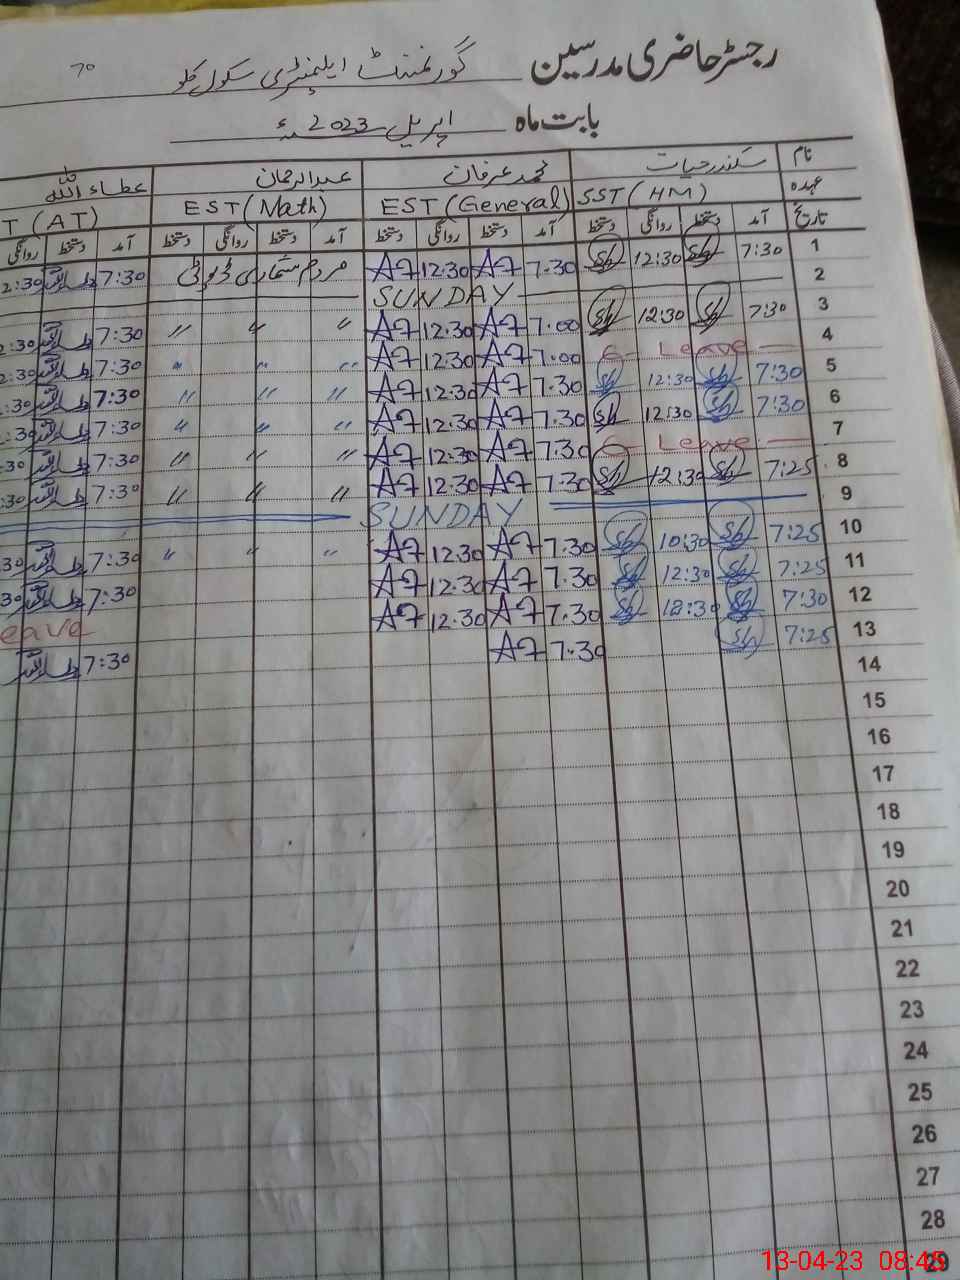 رجسٹر حاضری مدرسین گورنمنٹ ایلیمنٹری سکول کلو 70
بابت ماہ اپریل 2023ء
نام سکندر حیات محمد عرفان عبدالرحمان عطاء اللہ
عہدہ SST (HM) EST (General) EST (Math) T (AT)
تاریخ آمد دستخط روانگی دستخط آمد دستخط روانگی دستخط آمد دستخط روانگی دستخط آمد دستخط روانگی
1 7:30 Sh 12:30 Sh 7.30 AF 12.30 AF مردم شماری ڈیوٹی 7:30 2:30
2 SUNDAY
3 7:30 Sh 12:30 Sh 7.00 AF 12.30 AF " " " 7:30 2:30
4 Leave 7.00 AF 12.30 AF " " " 7:30 2:30
5 7:30 Sh 12:30 Sh 7.30 AF 12.30 AF " " " 7:30 2:30
6 7:30 Sh 12:30 Sh 7.30 AF 12.30 AF " " " 7:30 2:30
7 Leave 7.30 AF 12.30 AF " " " 7:30 :30
8 7:25 Sh 12:30 Sh 7.30 AF 12.30 AF " " " 7:30 :30
9 SUNDAY
10 7:25 Sh 10:30 Sh 7.30 AF 12.30 AF " " " 7:30 30
11 7:25 Sh 12:30 Sh 7.30 AF 12.30 AF 7:30 30
12 7:30 Sh 12:30 Sh 7.30 AF 12.30 AF eave
13 7:25 Sh 7.30 AF 7:30
14
15
16
17
18
19
20
21
22
23
24
25
26
27
28
29
13-04-23 08:45